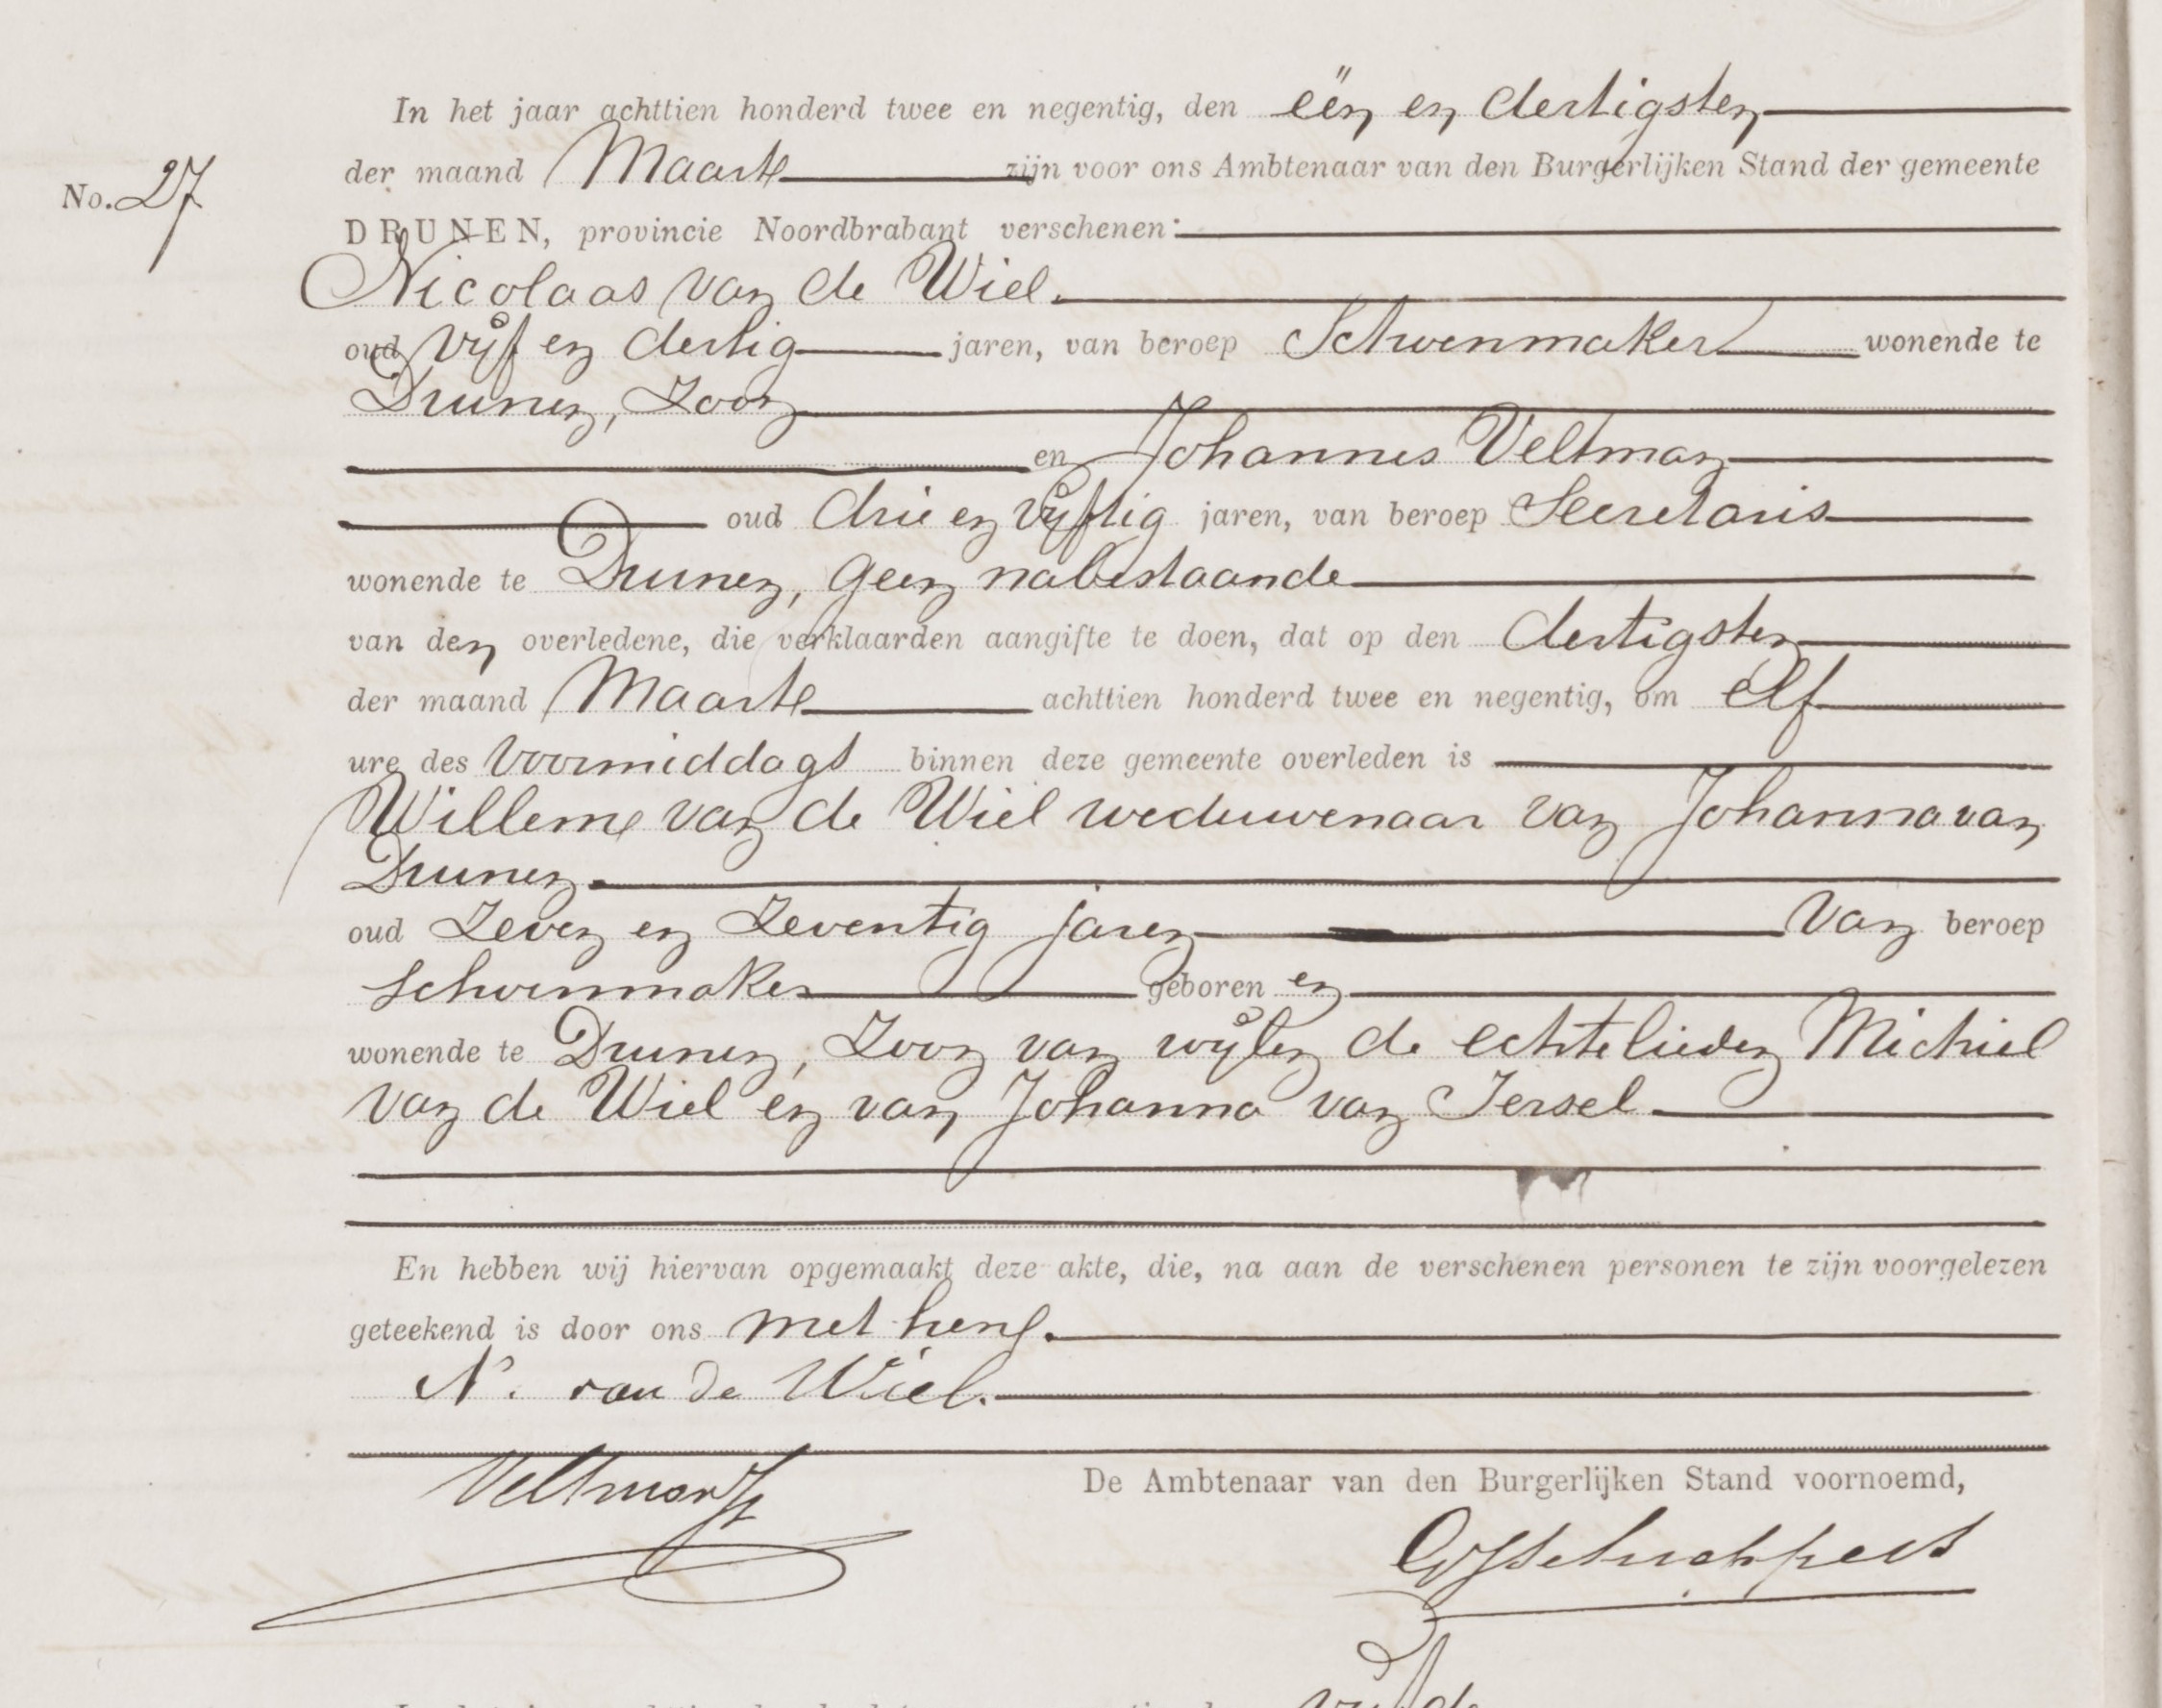 In het jaar achttien honderd twee en negentig, den eën en dertigsten
der maand Maart zijn voor ons Ambtenaar van den Burgerlijken Stand der gemeente
No. 27
DRUNEN, provincie Noordbrabant verschenen:
Nicolaas van de Wiel.
oud vijf en dertig jaren, van beroep Schoenmaker wonende te
Drunen, Zoon
en Johannes Veltman
oud drie en vijftig jaren, van beroep Secretaris
wonende te Drunen, geen nabestaande
van den overledene, die verklaarden aangifte te doen, dat op den dertigsten
der maand Maart achttien honderd twee en negentig, om elf
ure des voormiddags binnen deze gemeente overleden is
Willem van de Wiel weduwenaar van Johanna van
Drunen.
oud Zeven en Zeventig jaren van beroep
schoenmaker geboren en
wonende te Drunen, Zoon van wijlen de echtelieden Michiel
van de Wiel en van Johanna van Iersel.
En hebben wij hiervan opgemaakt deze akte, die, na aan de verschenen personen te zijn voorgelezen
geteekend is door ons met hen.
N. van de Wiel.
Veltman
De Ambtenaar van den Burgerlijken Stand voornoemd,